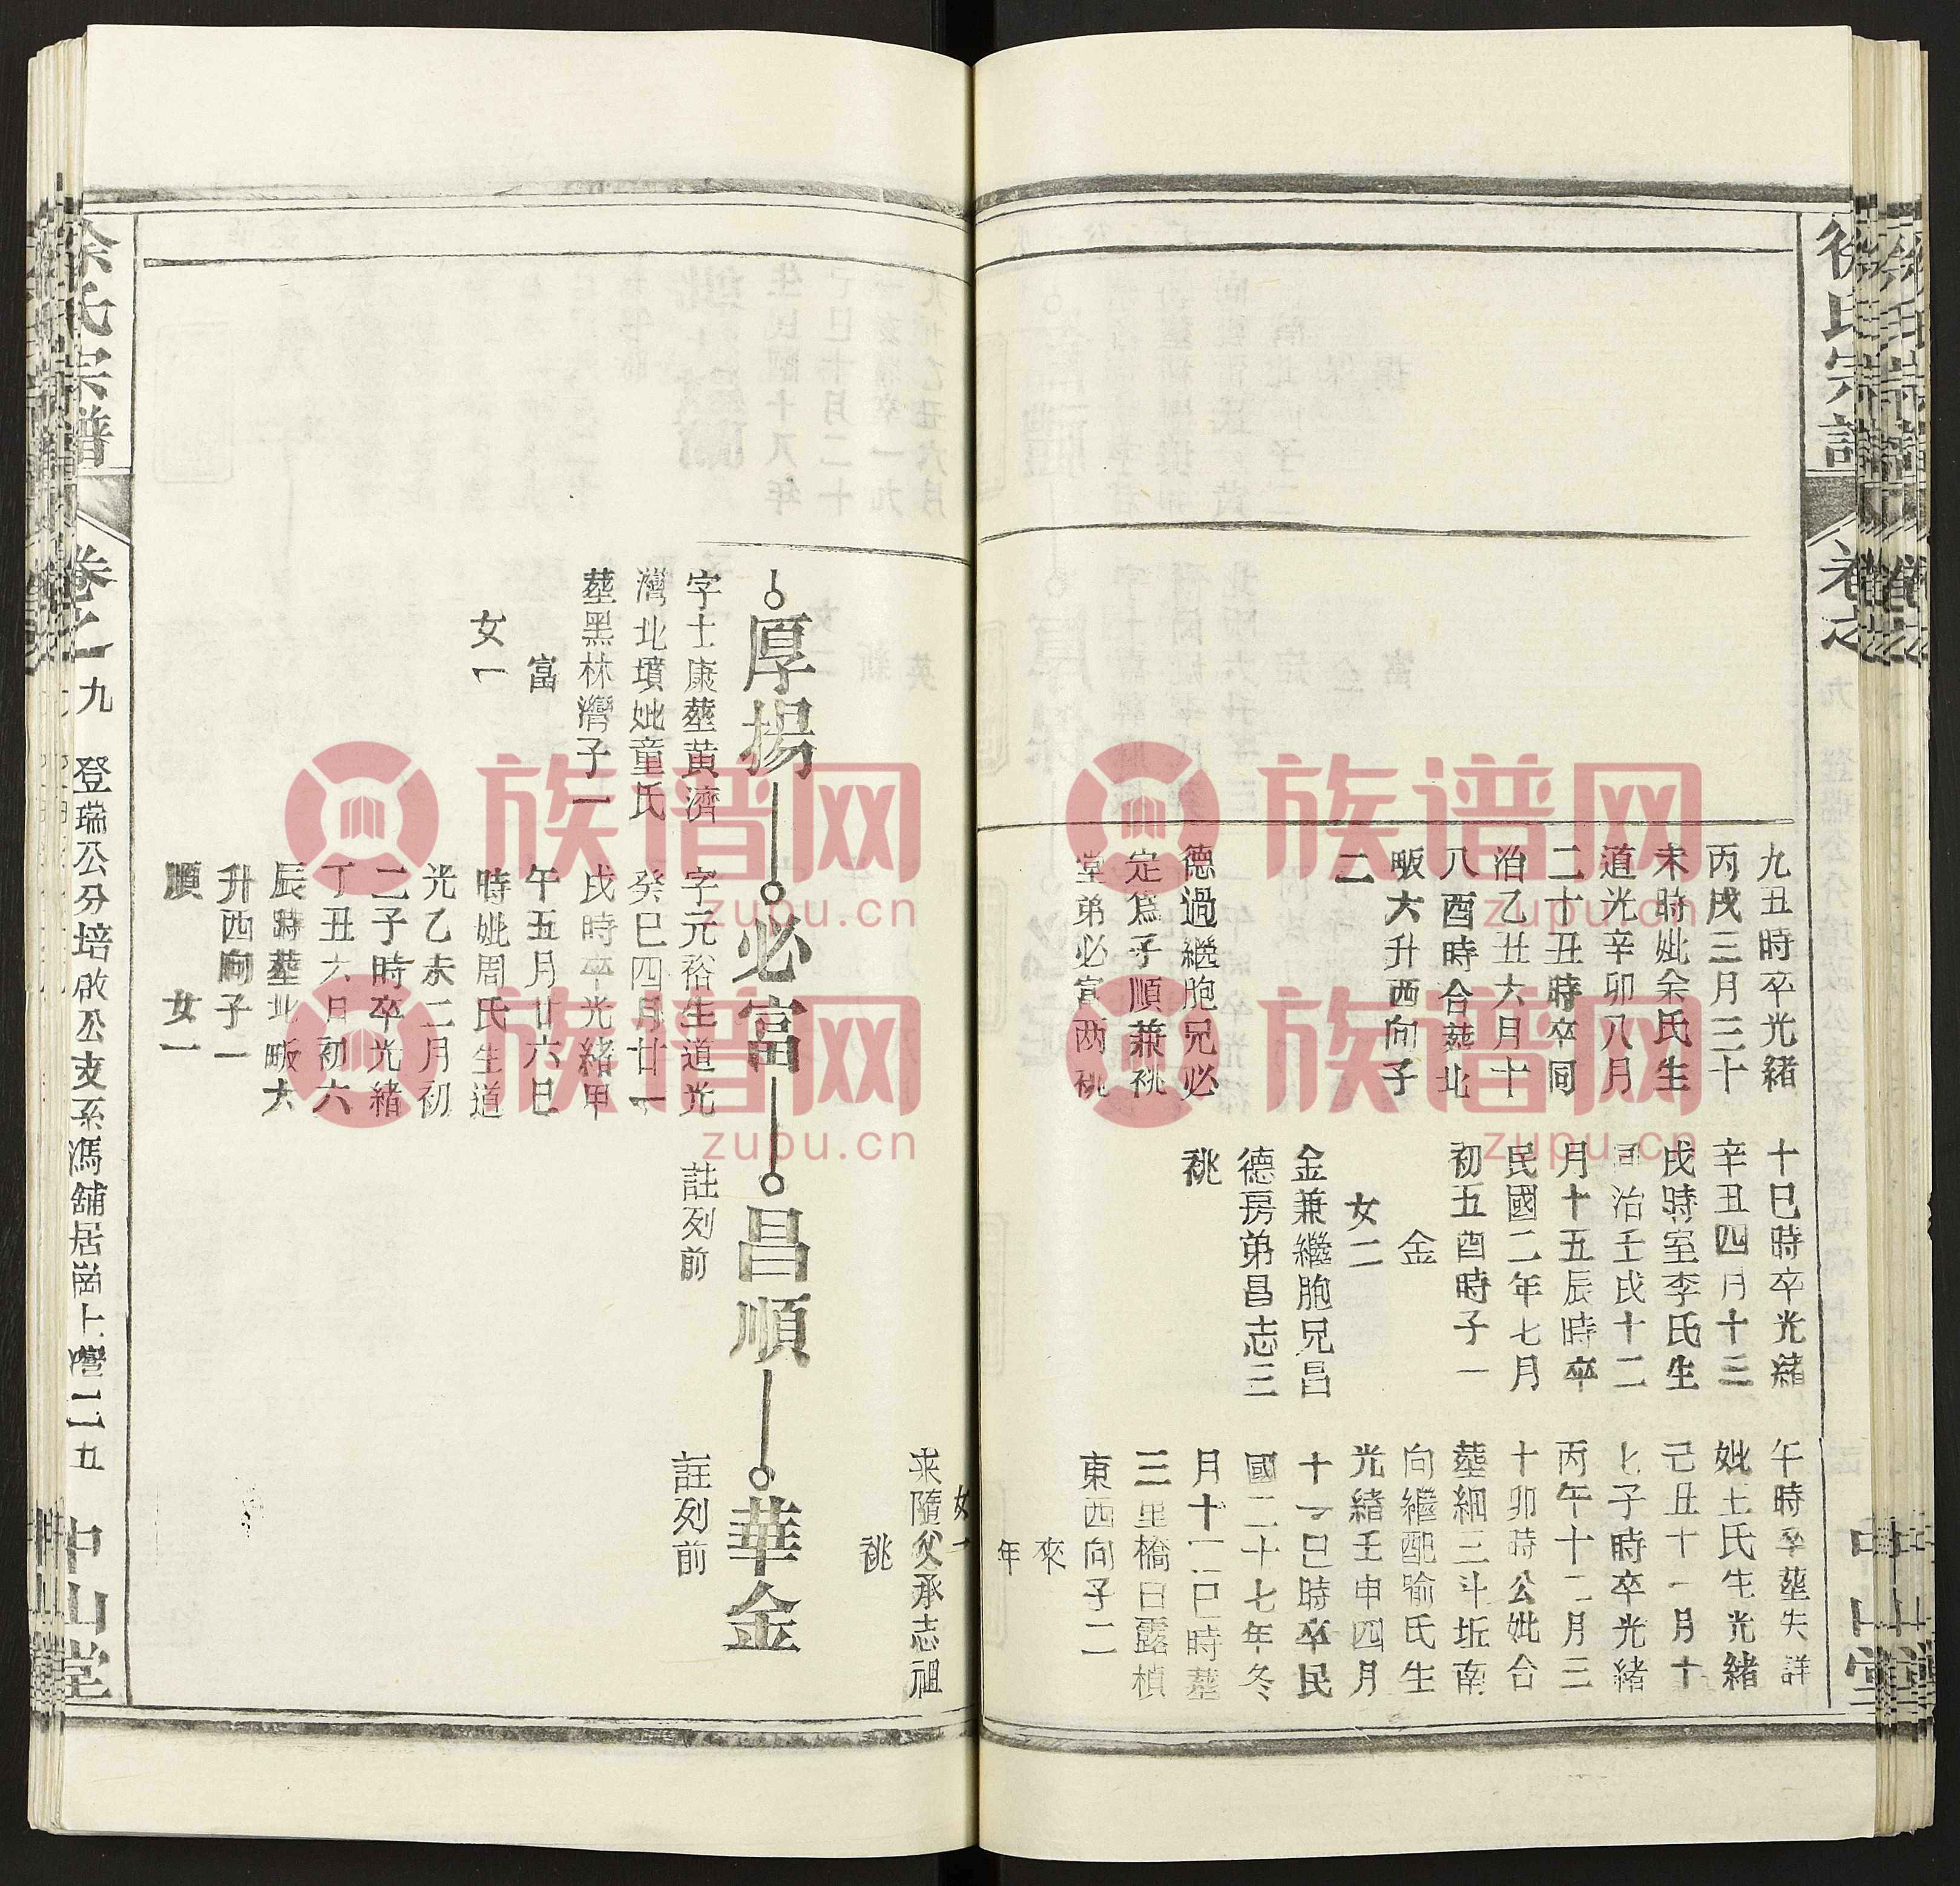 徐氏宗譜
卷之
中山堂
九丑時卒光緒
丙戌三月三十
未時妣余氏生
道光辛卯八月
二十丑時卒同
治乙丑六月十
八酉時合塟北
畈六升西向子
二
德過繼胞兄必
定爲子順兼祧
堂弟必富两祧
十巳時卒光緒
辛丑四月十三
戌時室李氏生
同治壬戌十二
月十五辰時卒
民國二年七月
初五酉時子一
金
女二
金兼繼胞兄昌
德房弟昌志三
祧
午時卒塟失詳
妣王氏生光緒
己丑十一月十
七子時卒光緒
丙午十二月三
十卯時公妣合
塟細三斗坵南
向繼配喻氏生
光緒壬申四月
十一巳時卒民
國二十七年冬
月十一巳時塟
三里橋白露槙
東西向子二
來
年
女一
来隨父承志祖
祧
厚揚
字士康塟黃濟
灣北墳妣童氏
塟黑林灣子一
富
女一
必富
字元裕生道光
癸巳四月廿一
戌時卒光緒甲
午五月廿六巳
時妣周氏生道
光乙未二月初
二子時卒光緒
丁丑六月初六
辰時塟北畈六
升西向子一
順
女一
昌順
註列前
華金
註列前
徐氏宗譜
卷之九
登瑞公分培啟公支系馮舖居崗上灣二一五
中山堂
族谱网
zupu.cn
族谱网
zupu.cn
族谱网
zupu.cn
族谱网
zupu.cn